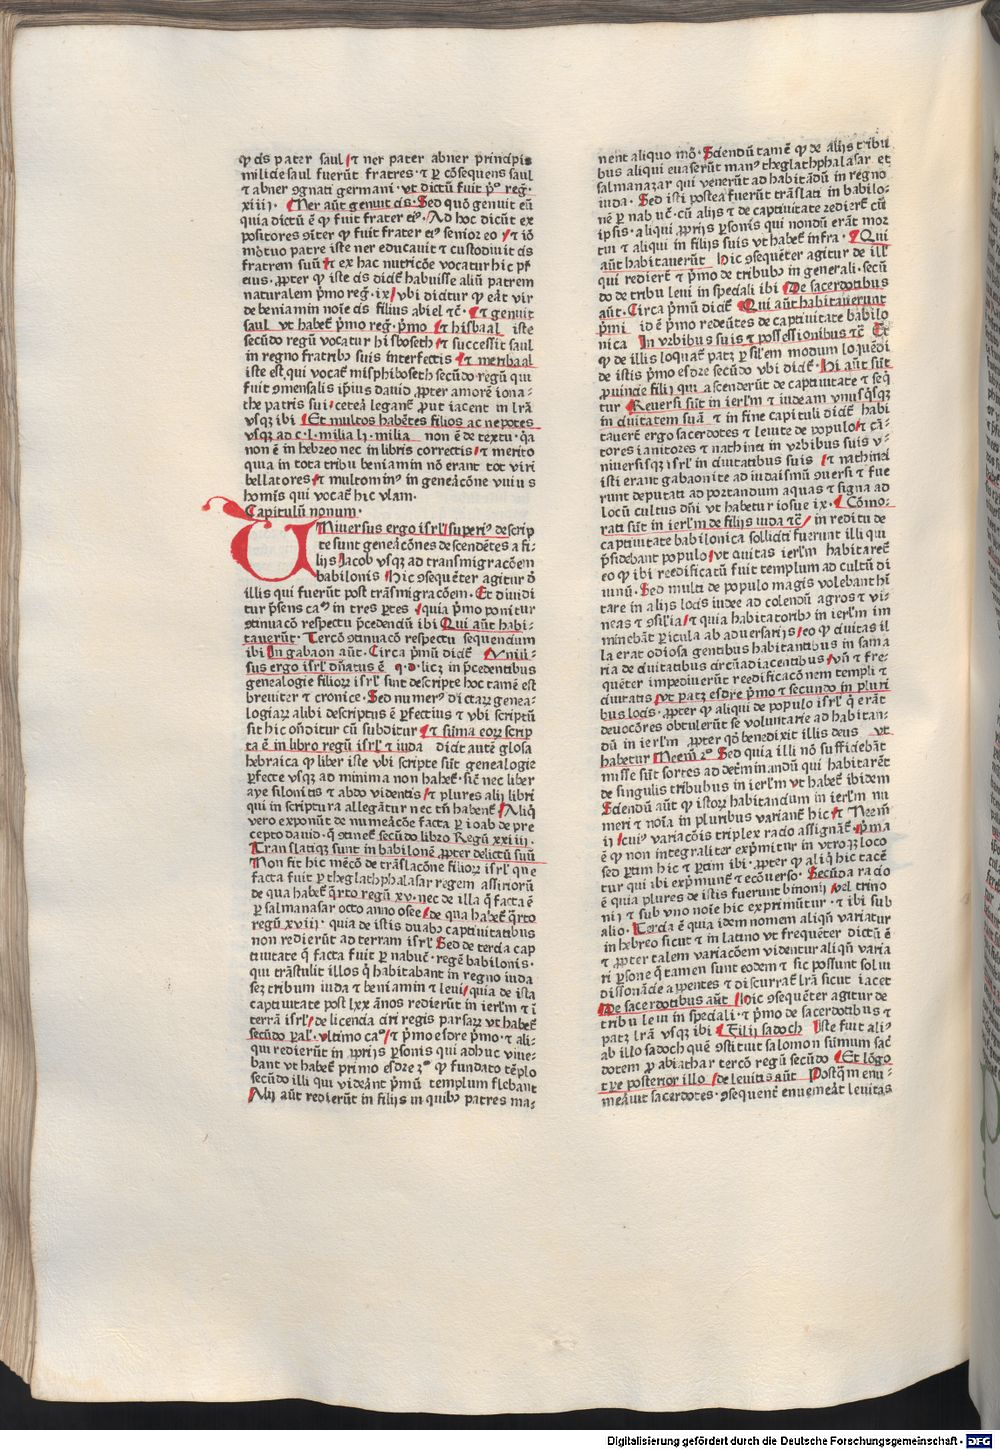 ꝙ cis pater saul ⁊ ner pater abner principis
milicie saul fuerūt fratres · ⁊ ꝑ cōsequens saul
⁊ abner ꝯgnati germani · vt dictū fuit pͦ reg̃ ·
xiiii · Ner aūt genuit cis · Sed quō genuit eū
quia dictū ē ꝙ fuit frater eiꝰ · Ad hoc dicūt ex
positores ꝯīter ꝙ fuit frater eiꝰ senior eo ⁊ iō
mōtuo patre iste ner educauit ⁊ custodiuit cis
fratrem suū ⁊ ex hac nutricōe vocatur hic pr̄
eius · ꝓpter ꝙ iste cis dicit̃ habuisse aliū patrem
naturalem p̄mo reg̃ · ix vbi dicitur ꝙ eāt vir
de beniamin noīe cis filius abiel ⁊c̃ · ⁊ genuit
saul vt habet̃ p̄mo reg̃ · p̄mo ⁊ hisbaal iste
secūdo regū vocatur hisboseth ⁊ successit saul
in regno fratribꝰ suis interfectis ⁊ meribaal
iste est qui vocat̃ misphiboseth secūdo regū qui
fuit ꝯmensalis ip̄ius dauid ꝓpter amorē iona⸗
the patris sui · ceteā legant̃ ꝓut iacent in lr̄a
vsqꝫ ibi Et multos habētes filios ac nepotes
vsqꝫ ad c · l · milia li · milia non ē de textu · q̄a
non ē in hebreo nec in libris correctis ⁊ merito
quia in tota tribu beniamin nō erant tot viri
bellatores ⁊ multominꝰ in geneācōne vnius
homīs qui vocat̃ hic vlam ·
Capitulū nonum ·
UNiuersus ergo isrl̄ superiꝰ descrip
te sunt geneācōnes descendētes a fi⸗
lijs Jacob vsqꝫ ad transmigracōem
babilonis Hic ꝯsequēter agitur ō
illis qui fuerūt post trāsmigracōem · Et diuidi
tur p̄sens caꝫ in tres ꝑtes quia p̄mo ponitur
ꝯtinuacō respectu p̄cedenciū ibi Qui aūt habi⸗
tauerūt · Tercō ꝯtinuacō respectu sequencium
ibi In gabaon aūt · Circa p̄mū dicit̃ Vniu⸗
sus ergo isrl̄ dn̄atus ē q · d · licꝫ in p̄cedentibus
genealogie filioꝝ isrl̄ sunt descripte hoc tamē est
breuiter ⁊ cronice · Sed numerꝰ dictaꝝ genea⸗
logiaꝝ alibi descriptus ē ꝑfectius ⁊ vbi scriptū
sit hic on̄ditur cū subditur ⁊ sūma eoꝝ scrip
ta ē in libro regū isrl̄ ⁊ iuda dicit autē glosa
hebraica ꝙ liber iste vbi scripte sūt genealogie
ꝑfecte vsqꝫ ad minima non habet̃ · sic̄ nec liber
aye silonitis ⁊ abdo videntis ⁊ plures alij libri
qui in scriptura allegātur nec tn̄ habent̃ Aliqͥ
vero exponūt de numeācōe facta ꝑ ioab de pre
cepto dauid · q̄ ꝯtinet̃ secūdo libro Regū xxiiii ·
Translatiqꝫ sunt in babilonē ꝓpter delictū suū
Non fit hic mēcō de trāslacōne filioꝝ isrl̄ que
facta fuit ꝑ theglathphalasar regem assirioꝝ
de qua habet̃ q̄rto regū xv · nec de illa q̄ facta ē
ꝑ salmanasar octo anno osee de qua habet̃ q̄rto
regū xviii · quia de istis duabꝰ captiuitatibus
non redierūt ad terram isrl̄ Sed de tercia cap
tiuitate q̄ facta fuit ꝑ nabuc̄ · regē babilonis ·
qui trāstulit illos q̄ habitabant in regno iuda
scꝫ tribum iuda ⁊ beniamin ⁊ leui quia de ista
captiuitate post lxx ānos redierūt in ierl̄m ⁊ ī
terrā isrl̄ de licencia ciri regis parsaꝝ vt habet̃
secūdo ꝑal̄ · vltimo caͦ ⁊ p̄mo esdre p̄mo · ⁊ ali⸗
qui redierūt in ꝓprijs ꝑsonis qui adhuc viue⸗
bant vt habet̃ primo esdre 3ͦ ꝙ fundato tēplo
secūdo illi qui vidēant p̄mū templum flebant
Alij aūt redierūt in filijs in quibꝰ patres ma⸗
nent aliquo mō · Sciendū tam̄ ꝙ de alijs tribu
bus aliqui euaserūt manꝰ theglathphalasar et
salmanazar qui venerūt ad habitādū in regno
iuda · Sed isti postea fuerūt trāslati in babilo⸗
nē ꝑ nabuc̄ · cū alijs ⁊ de captiuitate rediert̃ cū
ipsis · aliqui ꝓprijs ꝑsonis qui nondū erāt mor
tui ⁊ aliqui in filijs suis vt habet̃ infra · Qui
aūt habitauerūt Hic ꝯsequēter agitur de ill̄
qui rediert̃ ⁊ p̄mo de tribubꝰ in generali · secū
do de tribu leui in speciali ibi De sacerdotibus
aūt · Circa p̄mū dicit̃ Qui aūt habitauerunt
p̄mi id ē p̄mo redeūtes de captiuitate babilo
nica In vrbibus suis ⁊ possessionibus ⁊c̃ Et
ꝙ de illis loquat̃ patꝫ ꝑ sil̄em modum loquēdi
de istis p̄mo esdre secūdo vbi dicit̃ · Hi aūt sūt
ꝓuincie filij qui ascenderūt de captiuitate ⁊ seq̄
tur Reuersi sūt in ierl̄m ⁊ iudeam vnusq̄sqꝫ
in ciuitatem suā ⁊ in fine capituli dicit̃ habi
tauert̃ ergo sacerdotes ⁊ leuite de populo ⁊ cā⸗
tores ianitores ⁊ nathinei in vrbibus suis v⸗
niuersisqꝫ isrl̄ in ciuitatibus suis ⁊ nathinei
isti erant gabaonite ad iudaismū ꝯuersi ⁊ fue
runt deputati ad portandum aquas ⁊ ligna ad
locū cultus dn̄i vt habetur iosue ix · Cōmo⸗
rati sūt in ierl̄m de filijs iuda ⁊c̃ in reditu de
captiuitate babilonica solliciti fuerunt illi qui
p̄sidebant populo vt ciuitas ierl̄m habitaret̃
eo ꝙ ibi reedificatū fuit templum ad cultū di
uinū · Sed multi de populo magis volebant hī
tare in alijs locis iudee ad colendū agros ⁊ vi⸗
neas ⁊ ꝯsilia ⁊ quia habitatoribꝰ in ierl̄m im
minebāt ꝑicula ab aduersarijs eo ꝙ ciuitas il
la erat odiosa gentibus habitantibus in sama
ria ⁊ ciuitatibus circūadiacentibus vn̄ ⁊ fre⸗
quēter impediuerūt reedificacōnem templi ⁊
ciuitatis vt patꝫ esdre p̄mo ⁊ secundo in pluri
bus locis · ꝓpter ꝙ aliqui de populo isrl̄ q̄ erāt
deuociōres obtulerūt se voluntarie ad habitan⸗
dū in ierl̄m ꝓpter qͦd benedixit illis deus vt
habetur Neem̄ 2ͦ Sed quia illi nō sufficiebāt
misse sūt sortes ad det̄minandū qui habitarēt
de singulis tribubus in ierl̄m vt habet̃ ibidem
Sciendū aūt ꝙ istoꝝ habitancium in ierl̄m nu
meri ⁊ noīa in pluribus variant̃ hic ⁊ Neem̄
ii cuiꝰ variacōis triplex racio assignat̃ · p̄ma
ē ꝙ non integraliter exp̄mitur in vtroqꝫ loco
sed ꝑtim hic ⁊ ꝑtim ibi · ꝓpter ꝙ aliq̄ hic tacē
tur qui ibi exp̄munt̃ ⁊ ecōuerso · Secūda racio
ē quia plures de istis fuerunt binonij vel trino
nij ⁊ sub vno noīe hic exprimūtur · ⁊ ibi sub
alio · Tercia ē quia idem nomem aliqn̄ variatur
in hebreo sicut ⁊ in latino vt frequēter dictū ē
⁊ ꝓpter talem variacōem videntur aliqn̄ varia
ri ꝑsone q̄ tamen sunt eodem ⁊ sic possunt solui
dissonācie apꝑentes ⁊ discurrat̃ lr̄a sicut iacet
De sacerdotibus aūt Hic ꝯsequēter agitur de
tribu leui in speciali · ⁊ p̄mo de sacerdotibus ⁊
patꝫ lr̄a vsqꝫ ibi Filij sadoch Iste fuit aliꝰ
ab illo sadoch quē ꝯstituit salomon sūmum sac̄
dotem ꝓ abiathar tercō regū secūdo Et lōgo
tꝑe posterior illo de leuitis aūt Postq̄m enu⸗
meāuit sacerdotes · ꝯsequent̃ enumeāt leuitas
Digitalisierung gefördert durch die Deutsche Forschungsgemeinschaft - DFG